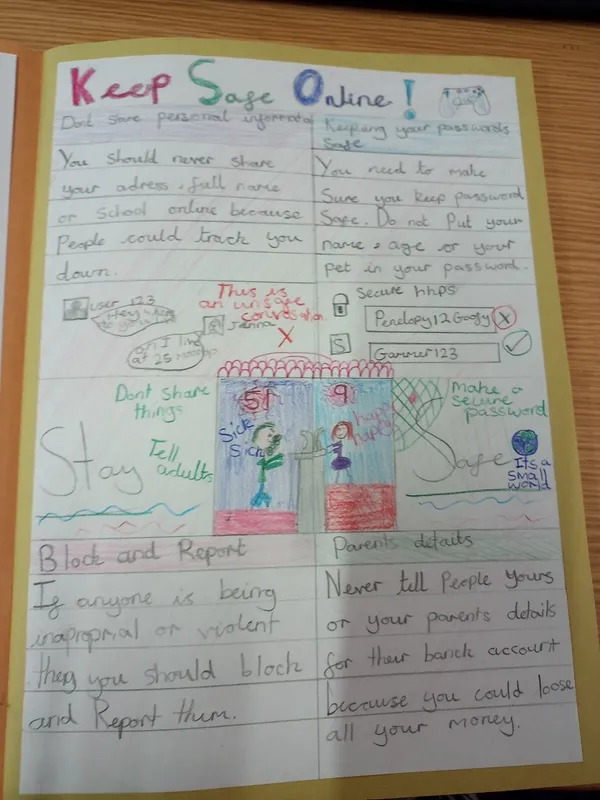 Keep Safe Online!
Dont share personal informatio
You should never share
your adress, full name
or school online because
People could track you
down.
Keeping your passwords
Safe
You need to make
Sure you keep password
Safe. Do not Put your
name, age or your
pet in your password.
user 123
Hey
to you
Jenna
I live
at 25
This is
an unsafe
X
Secure
Penelopy12Googy X
S
Gammer123
Dont share
things
Tell
adults
Stay
51
Sick
Sick
9
happy
happy
Make a
secure
password
Safe
Its a
small
world
Block and Report
If anyone is being
inaproprial or violent
then you should block
and Report thum.
Parents details
Never tell People yours
or your parents details
for their banck account
because you could loose
all your money.